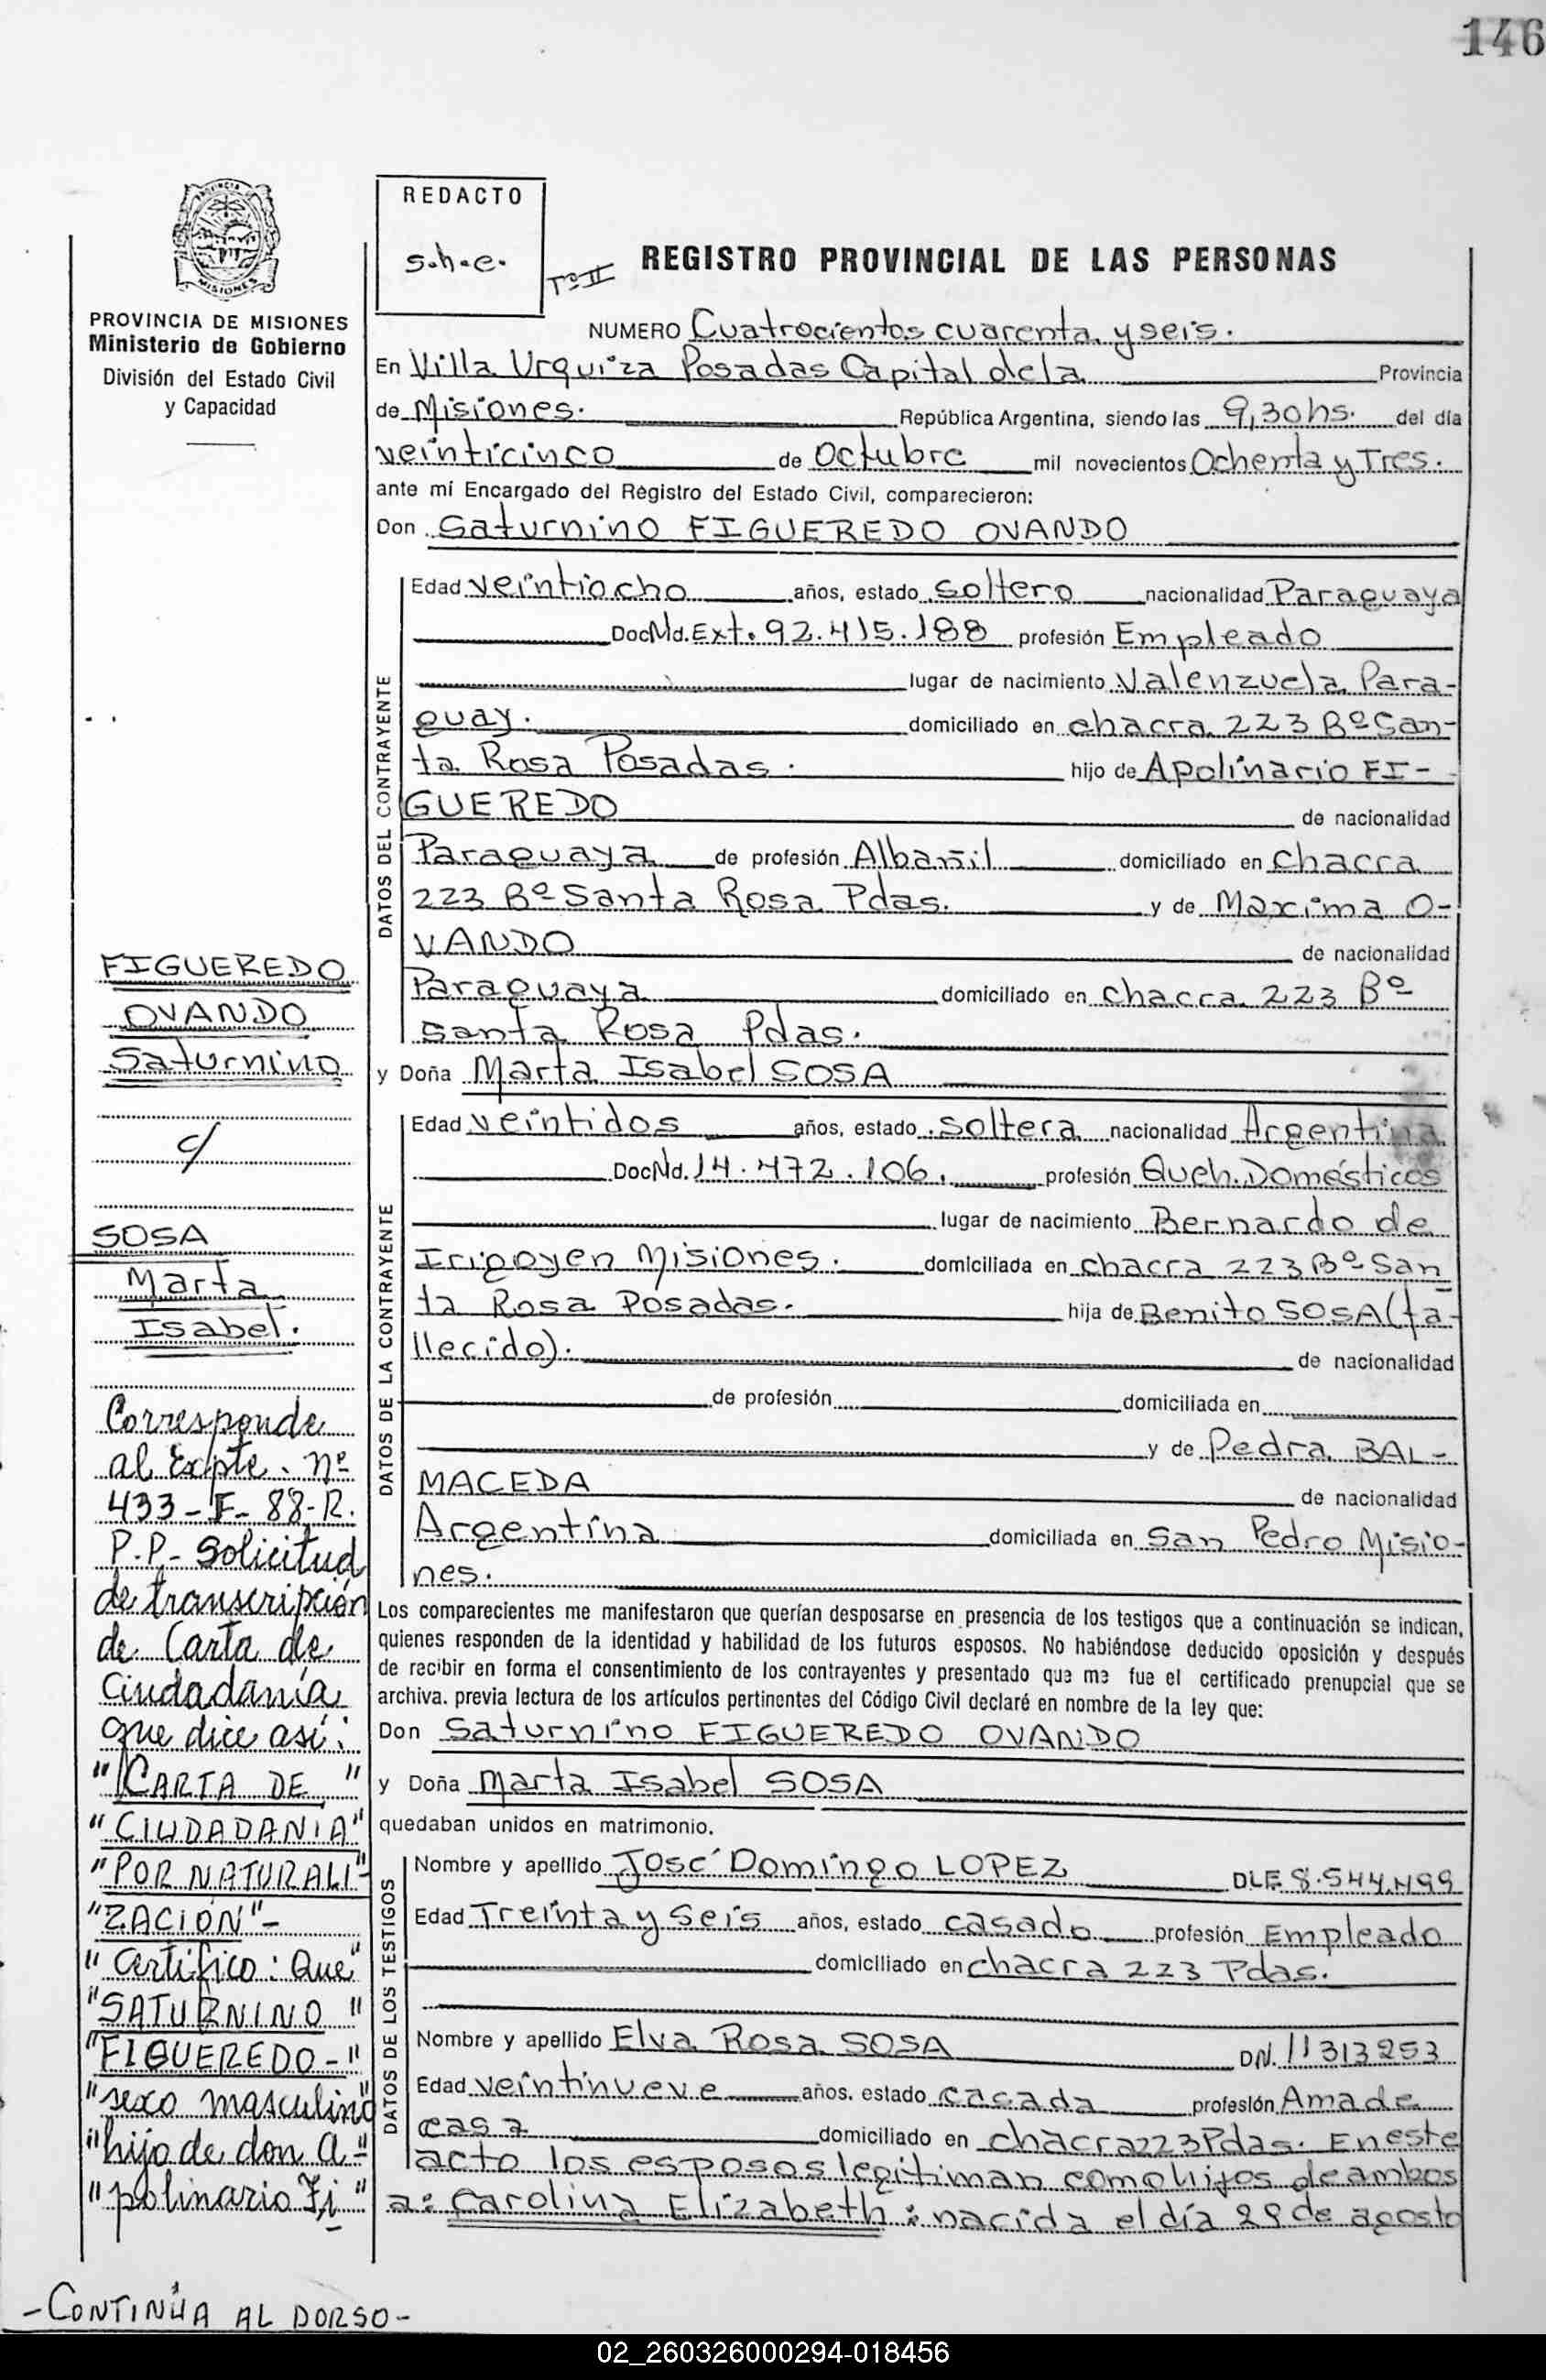 146
REDACTO
s.h.e.
Tº II
REGISTRO PROVINCIAL DE LAS PERSONAS
PROVINCIA DE MISIONES
Ministerio de Gobierno
División del Estado Civil
y Capacidad
NUMERO Cuatrocientos cuarenta y seis.
En Villa Urquiza Posadas Capital de la Provincia
de Misiones. República Argentina, siendo las 9,30 hs. del día
veinticinco de Octubre mil novecientos Ochenta y Tres.
ante mi Encargado del Registro del Estado Civil, comparecieron:
Don Saturnino FIGUEREDO OVANDO
DATOS DEL CONTRAYENTE
Edad veintiocho años, estado soltero nacionalidad Paraguaya
Doc Nd. Ext. 92.415.188 profesión Empleado
lugar de nacimiento Valenzuela Para-
guay. domiciliado en chacra 223 Bº San-
ta Rosa Posadas. hijo de Apolinario FI-
GUEREDO de nacionalidad
Paraguaya de profesión Albañil domiciliado en chacra
223 Bº Santa Rosa Pdas. y de Maxima O-
VANDO de nacionalidad
Paraguaya domiciliado en chacra 223 Bº
Santa Rosa Pdas.
y Doña Marta Isabel SOSA
DATOS DE LA CONTRAYENTE
Edad veintidos años, estado soltera nacionalidad Argentina
Doc Nd. 14.472.106. profesión Queh. Domésticos
lugar de nacimiento Bernardo de
Irigoyen Misiones. domiciliada en chacra 223 Bº San
ta Rosa Posadas. hija de Benito SOSA (fa-
llecido). de nacionalidad
de profesión domiciliada en
y de Pedra BAL-
MACEDA de nacionalidad
Argentina domiciliada en San Pedro Misio-
nes.
Los comparecientes me manifestaron que querían desposarse en presencia de los testigos que a continuación se indican,
quienes responden de la identidad y habilidad de los futuros esposos. No habiéndose deducido oposición y después
de recibir en forma el consentimiento de los contrayentes y presentado que me fue el certificado prenupcial que se
archiva. previa lectura de los artículos pertinentes del Código Civil declaré en nombre de la ley que:
Don Saturnino FIGUEREDO OVANDO
y Doña Marta Isabel SOSA
quedaban unidos en matrimonio.
DATOS DE LOS TESTIGOS
Nombre y apellido José Domingo LOPEZ DLE 8.544.499
Edad Treinta y seis años, estado casado profesión Empleado
domiciliado en chacra 223 Pdas.
Nombre y apellido Elva Rosa SOSA DN. 11313253
Edad veintinueve años. estado casada profesión Ama de
casa domiciliado en chacra 223 Pdas. En este
acto los esposos legitiman como hijos de ambos
a: Carolina Elizabeth: nacida el día 29 de agosto
FIGUEREDO
OVANDO
Saturnino
c/
SOSA
Marta
Isabel.
Corresponde
al Expte. nº
433-F-88-R.
P.P- Solicitud
de transcripción
de Carta de
Ciudadanía
que dice así:
"CARTA DE"
"CIUDADANIA"
"POR NATURALI"-
"ZACIÓN"-
"Certifico: Que"
"SATURNINO"
"FIGUEREDO-"
"sexo masculino"
"hijo de don A-"
"polinario Fi"
-CONTINÚA AL DORSO-
02_260326000294-018456